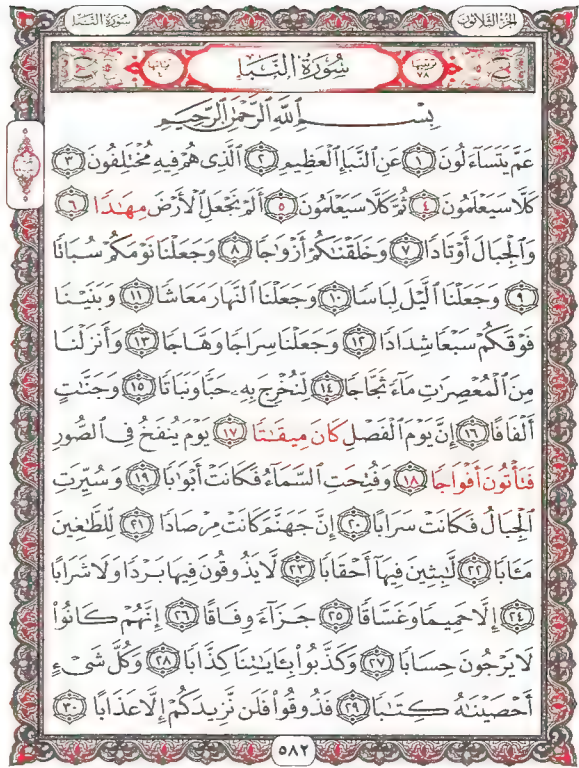 سُورَةُ النَّبَإِ الجُزْءُ الثَّلَاثُونَ
تَرتيبُهَا ٧٨ سُورَةُ النَّبَإِ آياتُهَا ٤٠
بِسْمِ ٱللَّهِ ٱلرَّحْمَٰنِ ٱلرَّحِيمِ
عَمَّ يَتَسَآءَلُونَ ١ عَنِ ٱلنَّبَإِ ٱلْعَظِيمِ ٢ ٱلَّذِى هُمْ فِيهِ مُخْتَلِفُونَ ٣
كَلَّا سَيَعْلَمُونَ ٤ ثُمَّ كَلَّا سَيَعْلَمُونَ ٥ أَلَمْ نَجْعَلِ ٱلْأَرْضَ مِهَٰدًا ٦
وَٱلْجِبَالَ أَوْتَادًا ٧ وَخَلَقْنَٰكُمْ أَزْوَٰجًا ٨ وَجَعَلْنَا نَوْمَكُمْ سُبَاتًا
٩ وَجَعَلْنَا ٱلَّيْلَ لِبَاسًا ١٠ وَجَعَلْنَا ٱلنَّهَارَ مَعَاشًا ١١ وَبَنَيْنَا
فَوْقَكُمْ سَبْعًا شِدَادًا ١٢ وَجَعَلْنَا سِرَاجًا وَهَّاجًا ١٣ وَأَنزَلْنَا
مِنَ ٱلْمُعْصِرَٰتِ مَآءً ثَجَّاجًا ١٤ لِّنُخْرِجَ بِهِۦ حَبًّا وَنَبَاتًا ١٥ وَجَنَّٰتٍ
أَلْفَافًا ١٦ إِنَّ يَوْمَ ٱلْفَصْلِ كَانَ مِيقَٰتًا ١٧ يَوْمَ يُنفَخُ فِى ٱلصُّورِ
فَتَأْتُونَ أَفْوَاجًا ١٨ وَفُتِحَتِ ٱلسَّمَآءُ فَكَانَتْ أَبْوَٰبًا ١٩ وَسُيِّرَتِ
ٱلْجِبَالُ فَكَانَتْ سَرَابًا ٢٠ إِنَّ جَهَنَّمَ كَانَتْ مِرْصَادًا ٢١ لِّلطَّٰغِينَ
مَـَٔابًا ٢٢ لَّٰبِثِينَ فِيهَآ أَحْقَابًا ٢٣ لَّا يَذُوقُونَ فِيهَا بَرْدًا وَلَا شَرَابًا
٢٤ إِلَّا حَمِيمًا وَغَسَّاقًا ٢٥ جَزَآءً وِفَاقًا ٢٦ إِنَّهُمْ كَانُوا۟
لَا يَرْجُونَ حِسَابًا ٢٧ وَكَذَّبُوا۟ بِـَٔايَٰتِنَا كِذَّابًا ٢٨ وَكُلَّ شَىْءٍ
أَحْصَيْنَٰهُ كِتَٰبًا ٢٩ فَذُوقُوا۟ فَلَن نَّزِيدَكُمْ إِلَّا عَذَابًا ٣٠
٥٨٢